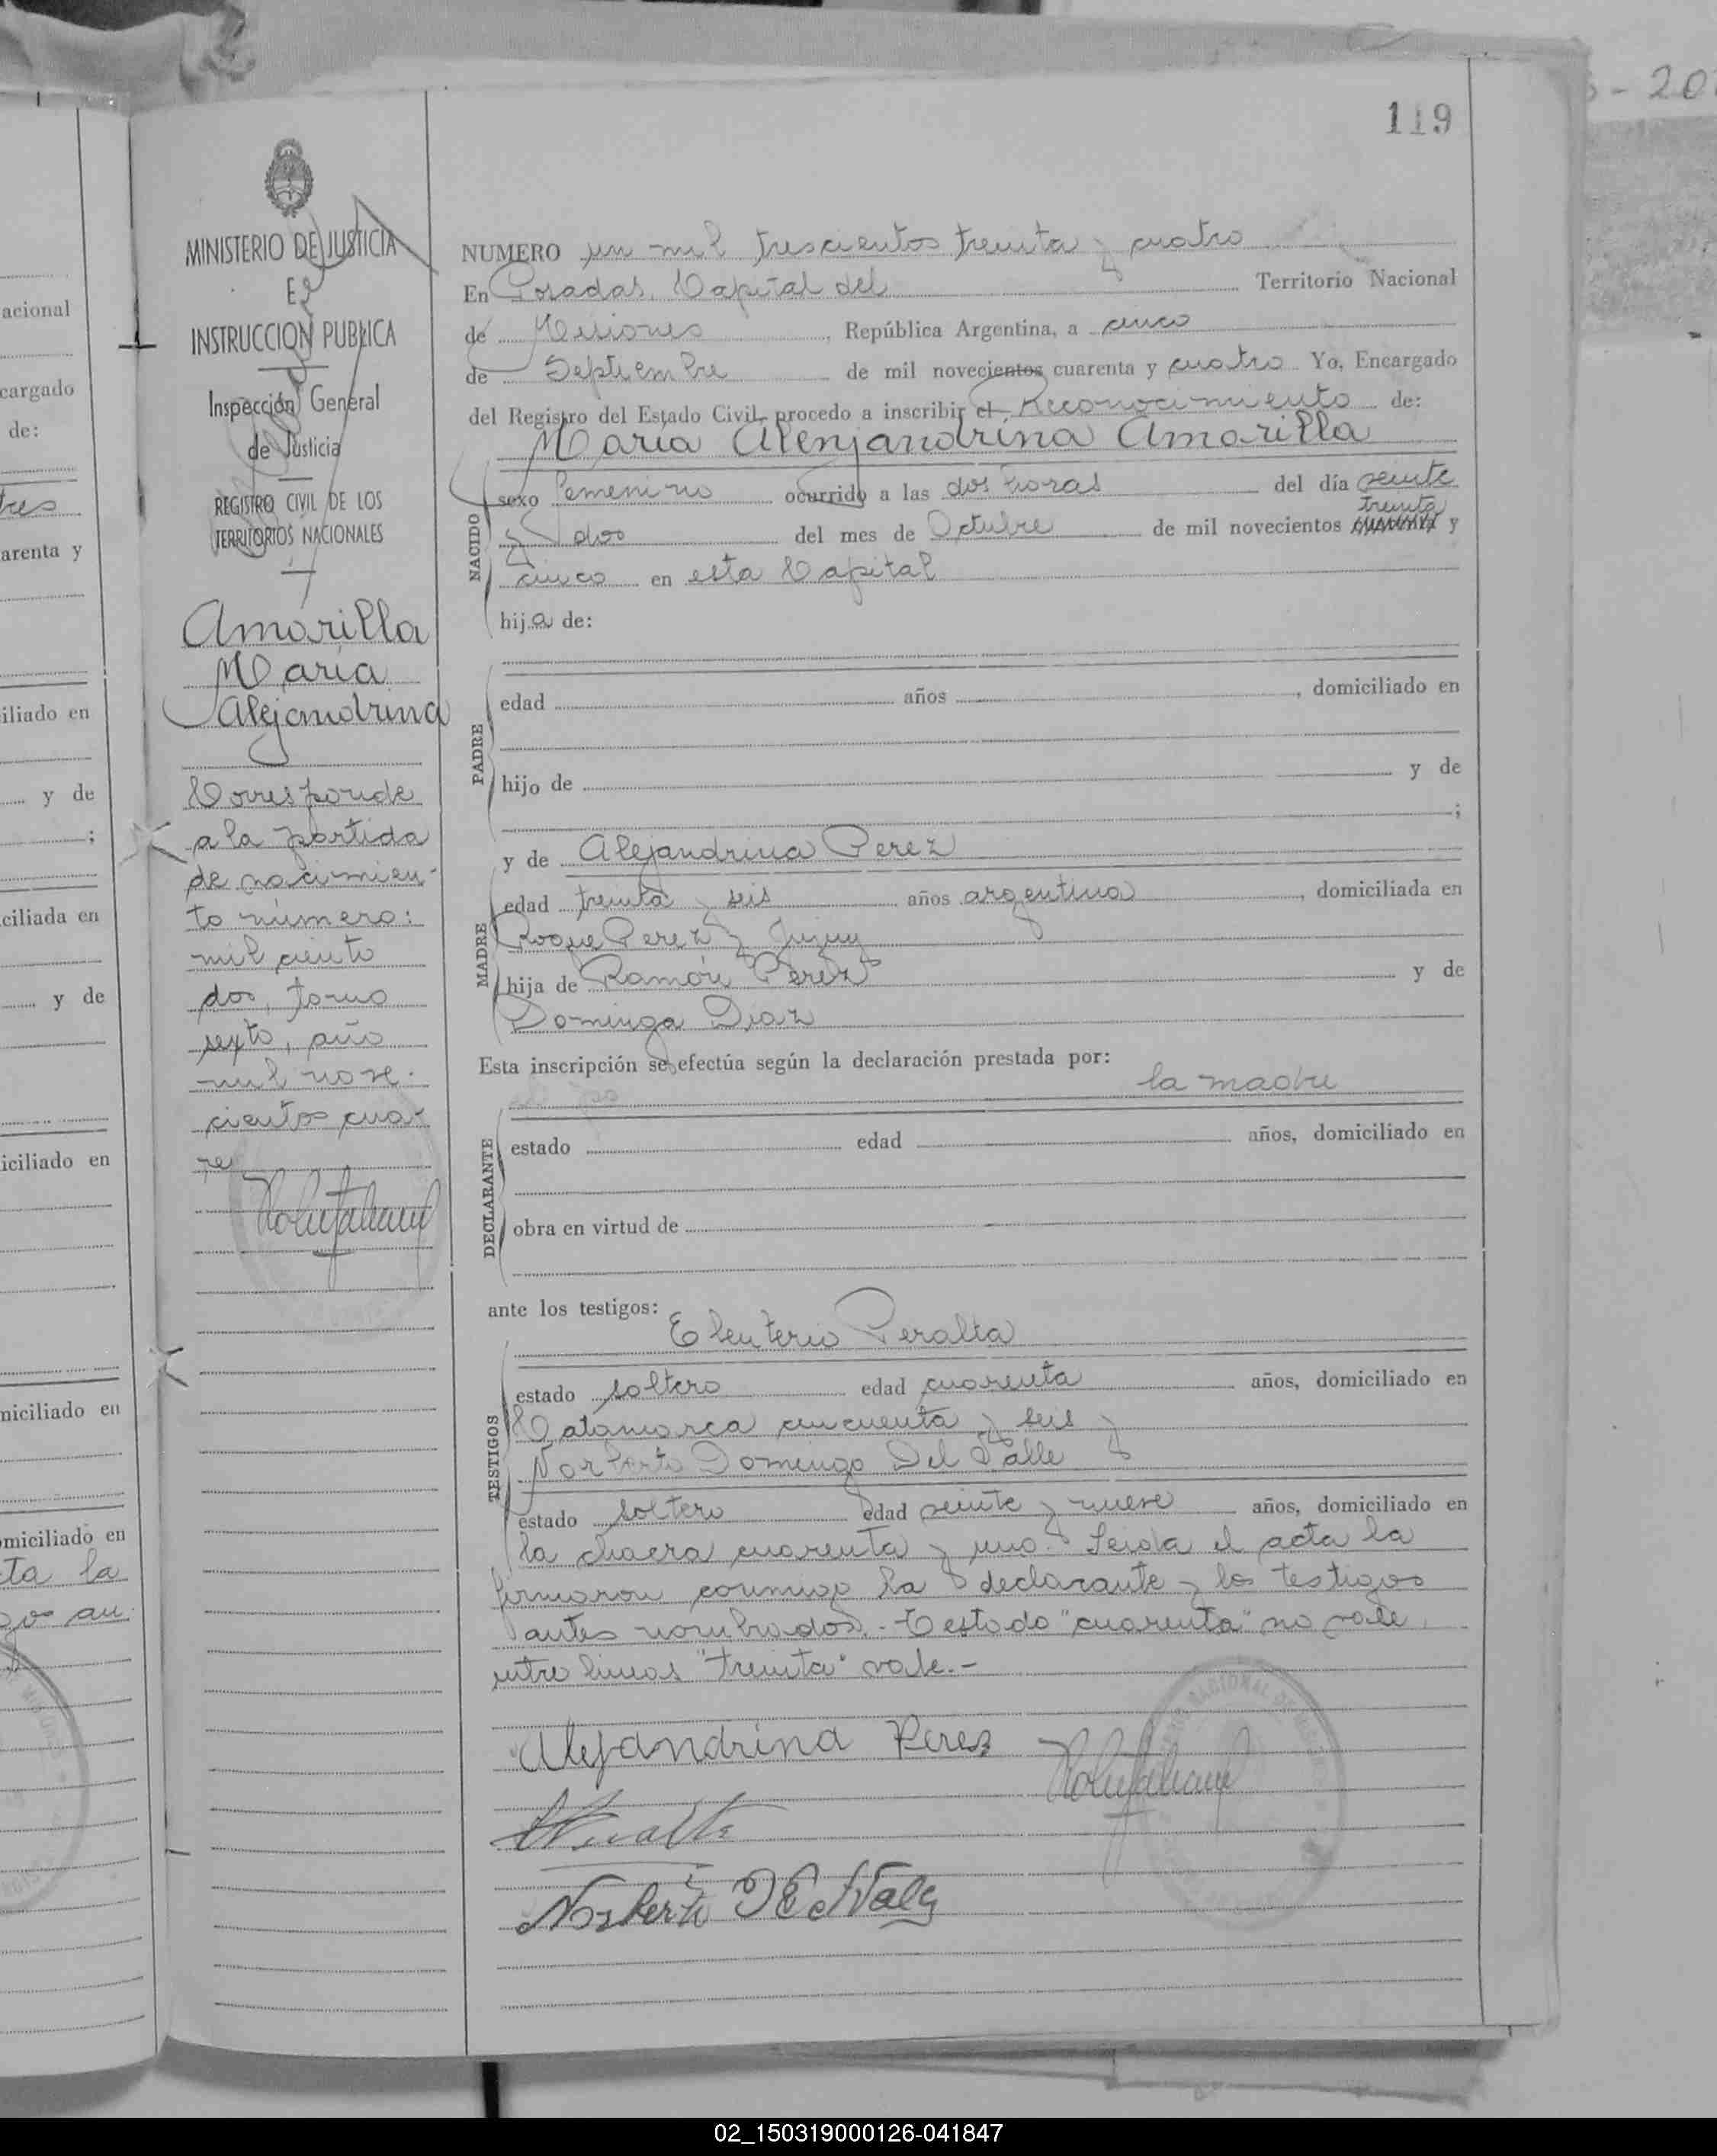 119
MINISTERIO DE JUSTICIA
E
INSTRUCCION PUBLICA
Inspección General
de Justicia
REGISTRO CIVIL DE LOS
TERRITORIOS NACIONALES
Amarilla
María
Alejandrina
Corresponde
a la partida
de nacimien-
to número:
mil ciento
dos, tomo
sexto, año
mil nove-
cientos cua-
NUMERO un mil trescientos treinta y cuatro
En Posadas, Capital del Territorio Nacional
de Misiones, República Argentina, a cinco
de Septiembre de mil novecientos cuarenta y cuatro Yo, Encargado
del Registro del Estado Civil, procedo a inscribir el Reconocimiento de:
María Alenjandrina Amarilla
NACIDO
sexo femenino ocurrido a las dos horas del día veinte
treinta
y dos del mes de Octubre de mil novecientos cuarenta y
cinco en esta Capital
hija de:
PADRE
edad años , domiciliado en
hijo de y de
;
y de Alejandrina Perez
MADRE
edad treinta y seis años argentina, domiciliada en
Roque Perez y Jujuy
hija de Ramón Perez y de
Dominga Diaz
Esta inscripción se efectúa según la declaración prestada por:
la madre
DECLARANTE
estado edad años, domiciliado en
obra en virtud de
ante los testigos:
Eleuterio Peralta
TESTIGOS
estado soltero edad cuarenta años, domiciliado en
Catamarca cincuenta y seis y
Norberto Domingo Del Valle y
estado soltero edad veinte y nueve años, domiciliado en
la chacra cuarenta y uno. Leida el acta la
firmaron conmigo la declarante y los testigos
antes nombrados.- Testado "cuarenta" no vale,
entre lineas "treinta" vale.-
Alejandrina Perez
Norberto D Del Valle
acional
cargado
de:
tres
arenta y
iliado en
y de
;
ciliada en
y de
iciliado en
miciliado en
omiciliado en
ta la
02_150319000126-041847